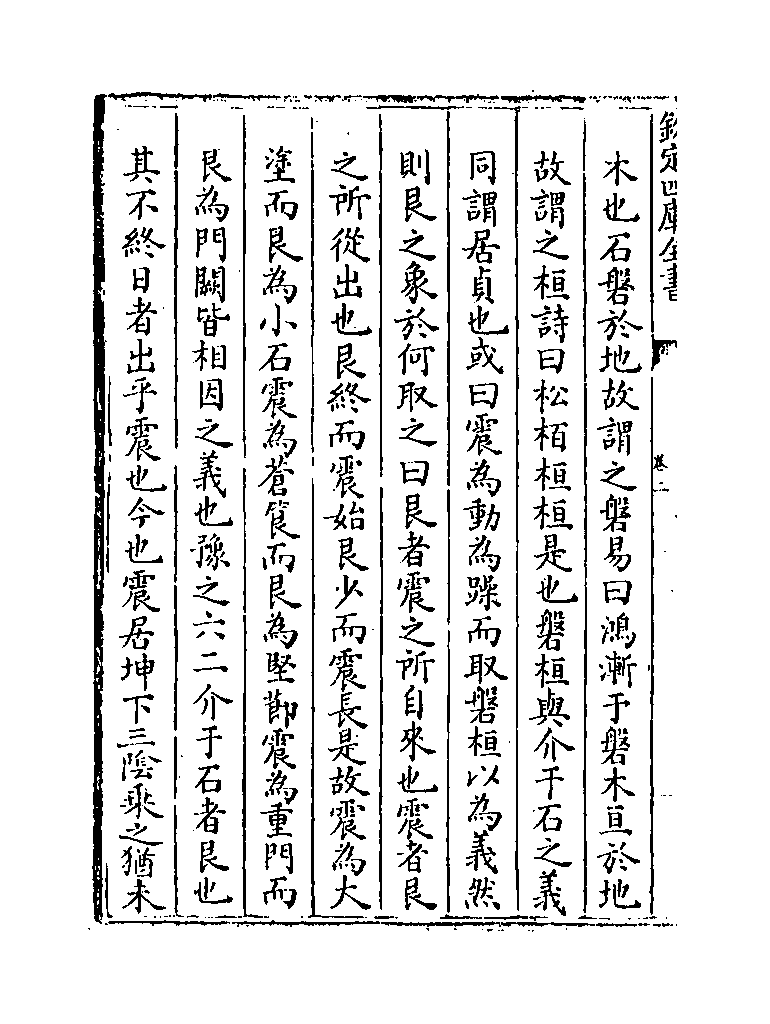 欽定四庫全書
卷二
木也石磐於地故謂之磐易曰鴻漸于磐木亘於地
故謂之桓詩曰松栢桓桓是也磐桓與介于石之義
同謂居貞也或曰震為動為躁而取磐桓以為義然
則艮之象於何取之曰艮者震之所自來也震者艮
之所從出也艮終而震始艮少而震長是故震為大
塗而艮為小石震為蒼筤而艮為堅節震為重門而
艮為門闕皆相因之義也豫之六二介于石者艮也
其不終日者出乎震也今也震居坤下三陰乗之猶未